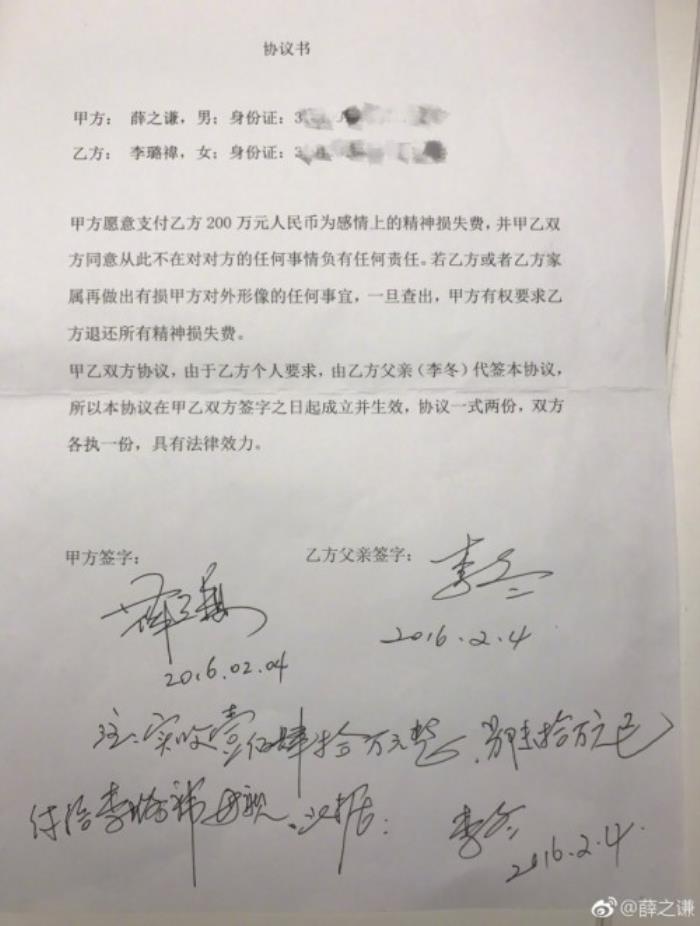 协议书
甲方： 薛之谦，男；身份证：3
乙方： 李璐禕，女；身份证：3
甲方愿意支付乙方 200 万元人民币为感情上的精神损失费，并甲乙双
方同意从此不在对对方的任何事情负有任何责任。若乙方或者乙方家
属再做出有损甲方对外形像的任何事宜，一旦查出，甲方有权要求乙
方退还所有精神损失费。
甲乙双方协议，由于乙方个人要求，由乙方父亲（李冬）代签本协议，
所以本协议在甲乙双方签字之日起成立并生效，协议一式两份，双方
各执一份，具有法律效力。
甲方签字： 乙方父亲签字：
薛之谦 李冬
2016.02.04 2016.2.4
注：实收壹佰肆拾万元整，另陆拾万元已
付给李璐禕母亲。此据：李冬
2016.2.4.
@薛之谦